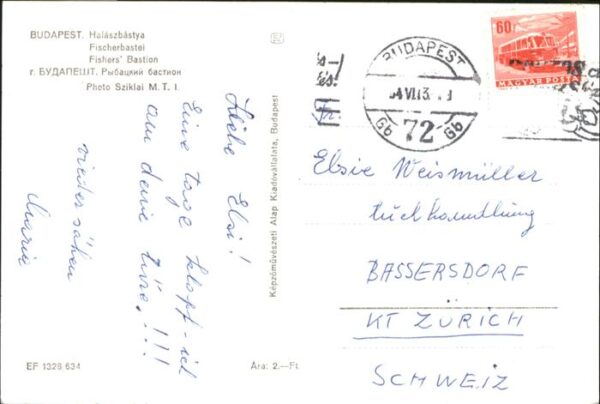 BUDAPEST. Halászbástya
Fischerbastei
Fishers' Bastion
г. БУДАПЕШТ. Рыбацкий бастион
Photo Sziklai M. T. I.
Liebe Elsi!
Eine tage klopf-ich
am deine türe,!!!
wiedersehen
Marie
EF 1328 634
Ára: 2.—Ft.
Képzőművészeti Alap Kiadóvállalata, Budapest
BUDAPEST
72
Gb Gb
60f
MAGYAR POSTA
Elsie Weismüller
tuchhandlung
BASSERSDORF
KT ZURICH
SCHWEIZ